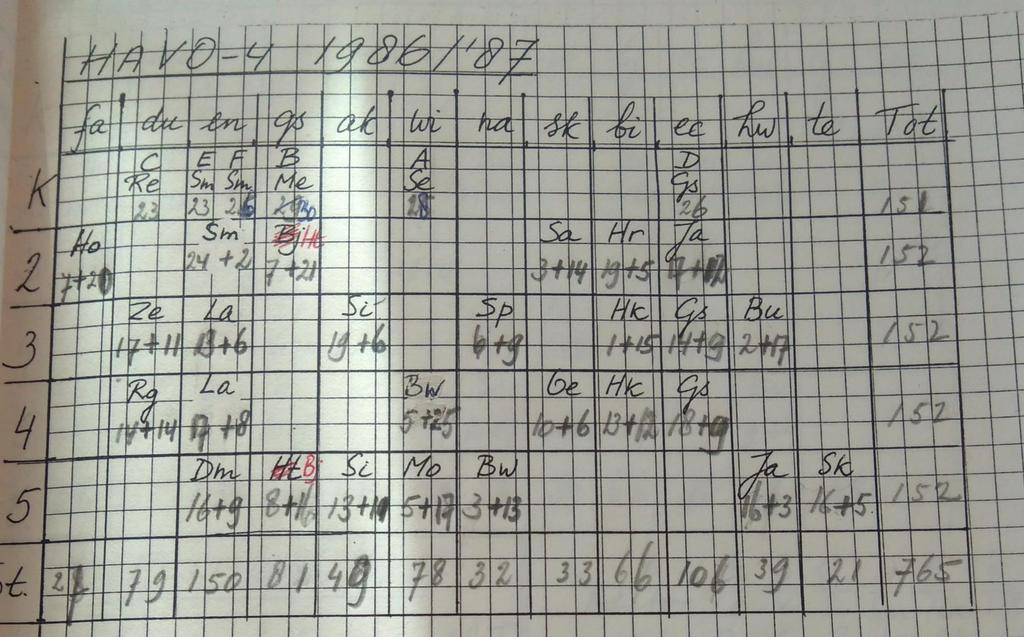 HAVO-4 1986/'87
fa du en gs ak wi na sk bi ec hw te Tot
C E F B A D
K Re Sm Sm Me Se Gs
23 23 26 28 26 151
2 Ho Sm Ht Sa Hr Ja
24+2 7+21 3+14 19+5 152
3 Ze La Si Sp Hk Gs Bu
17+11 19+6 6+9 1+15 14+9 2+17 152
4 Rg La Bw Ge Hk Gs
14+14 17+8 5+25 10+6 13+12 18+9 152
5 Dm Bj Si Mo Bw Ja Sk
16+9 8+16 13+11 5+17 3+13 16+3 16+5 152
t. 79 150 81 49 78 32 33 66 106 39 21 765